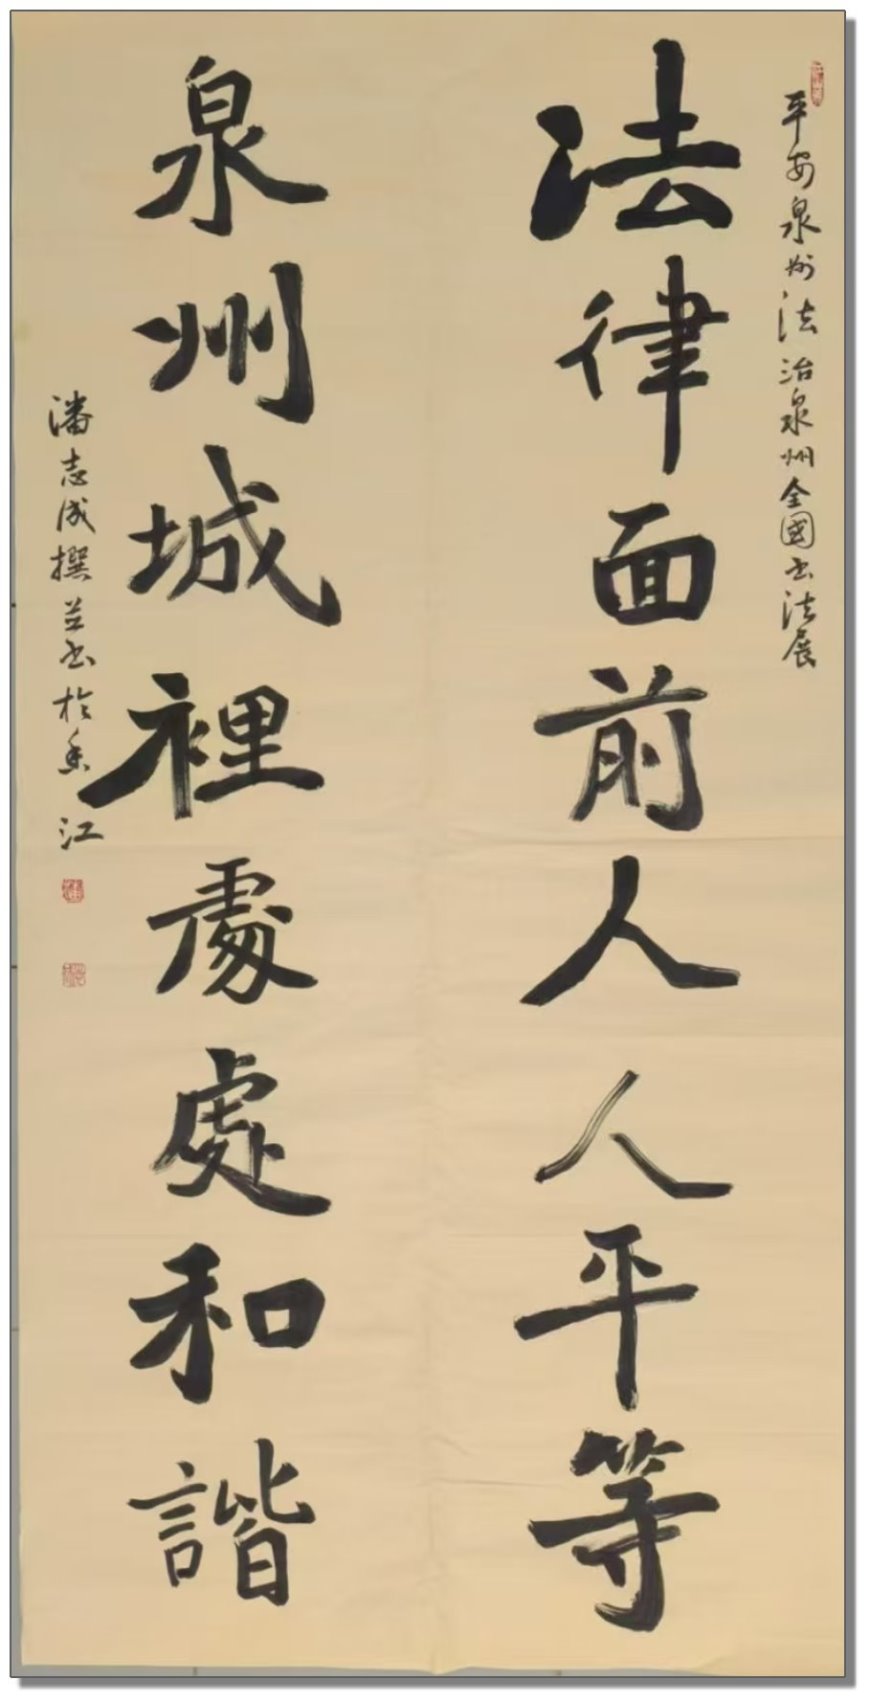 平安泉州法治泉州全國书法展
法律面前人人平等
泉州城裡處處和諧
潘志成撰並书於香江